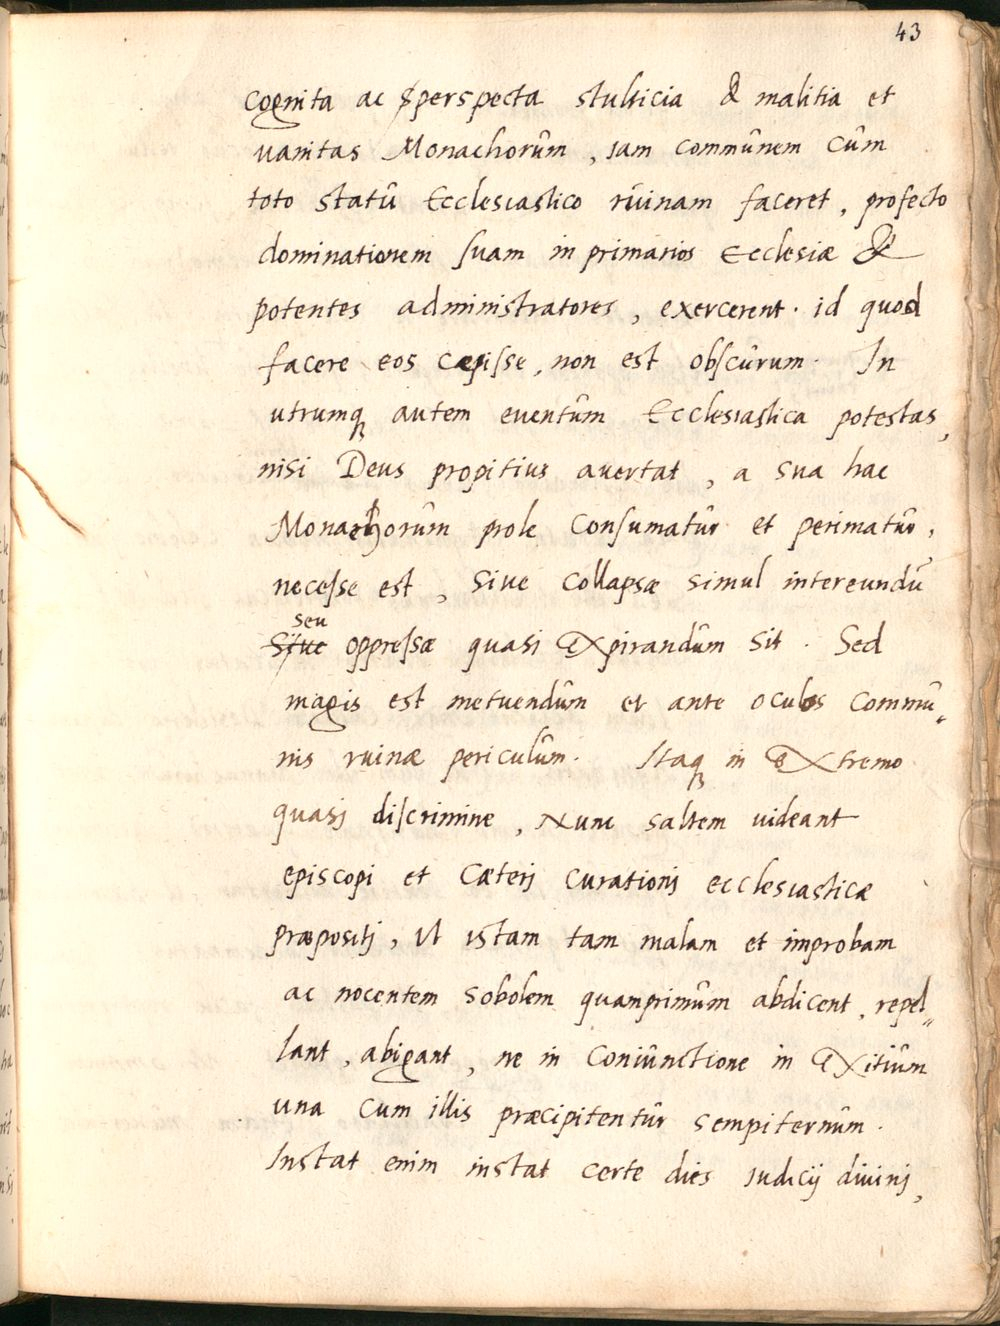 43
cognita ac perspecta stulticia & malitia et
vanitas Monachorûm, iam commûnem cûm
toto statû Ecclesiastico rûinam faceret, profecto
dominationem suam in primarios Ecclesiæ &
potentes administratores, exercerent. id quod
facere eos cæpisse, non est obscûrum. In
utrumq autem eventûm Ecclesiastica potestas,
nisi Deus propitius avertat, a sua hac
Monachorûm prole Consumatûr et perimatûr,
necesse est, Sive Collapsæ simul intereundū
seu
Sive oppressæ quasi Expirandûm sit. Sed
magis est metuendûm et ante oculos Commū„
nis ruinæ pericûlûm. Itaq in Extremo
quasi discrimine, Nunc saltem uideant
episcopi et Cæterj Curationj ecclesiasticæ
præpositj, Ut istam tam malam et improbam
ac nocentem Sobolem quamprimûm abdicent, repel„
lant, abigant, ne in Coniûnctione in Exitiûm
una Cum illis præcipitentûr sempiternûm.
Instat enim instat certe dies iudicij diuinj,